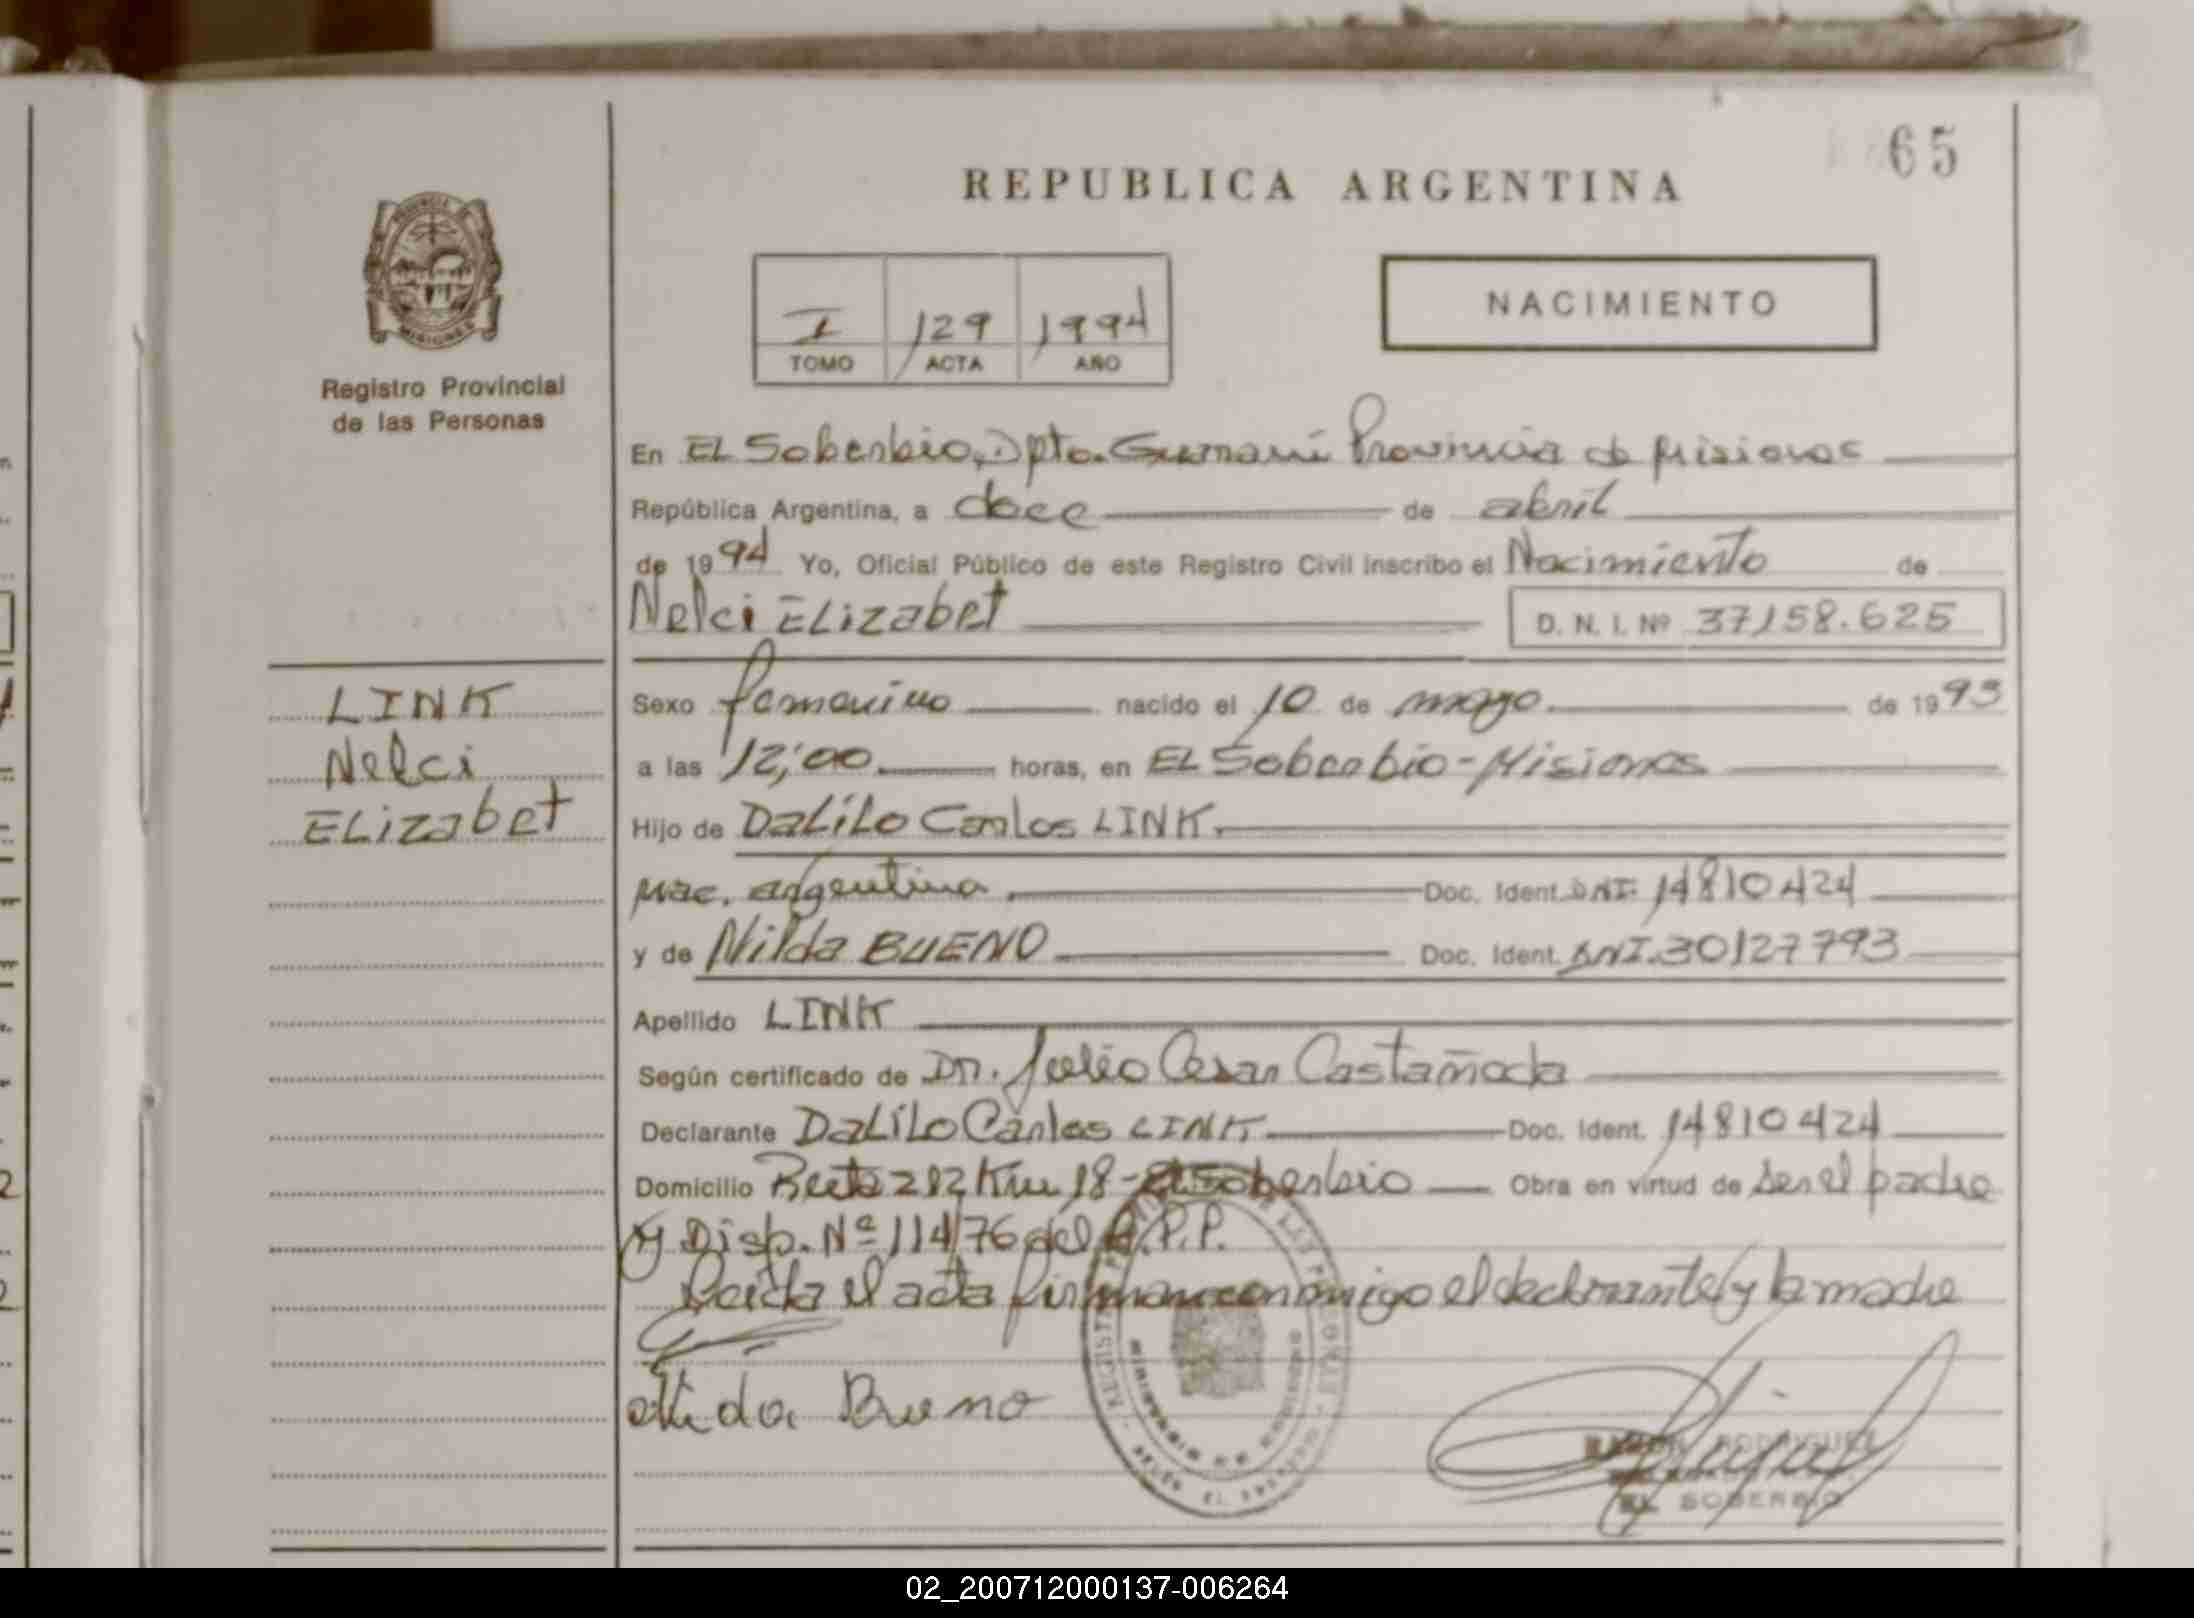 65
REPUBLICA ARGENTINA
I 129 1994
TOMO ACTA AÑO
NACIMIENTO
PROVINCIA DE
MISIONES
Registro Provincial
de las Personas
LINK
Nelci
ELizabet
En EL Soberbio, Dpto. Guaraní Provincia de Misiones
República Argentina, a doce de abril
de 1994 Yo, Oficial Público de este Registro Civil inscribo el Nacimiento de
Nelci ELizabet D. N. I. Nº 37158.625
Sexo femenino nacido el 10 de mayo de 1993
a las 12,00 horas, en EL Soberbio-Misiones
Hijo de DaLiLo Carlos LINK.
Nac. argentina Doc. Ident. DNI. 14810424
y de Nilda BUENO Doc. Ident. DNI. 30127793
Apellido LINK
Según certificado de Dr. Julio Cesar Castañeda
Declarante DaLiLo Carlos LINK Doc. Ident. 14810424
Domicilio Ruta 212 Km 18-El Soberbio Obra en virtud de ser el padre
y Disp. Nº 114/76 del R.P.P.
Leida el acta firman conmigo el declarante y la madre
Bueno
RODRIGUEZ
EL SOBERBIO
02_200712000137-006264